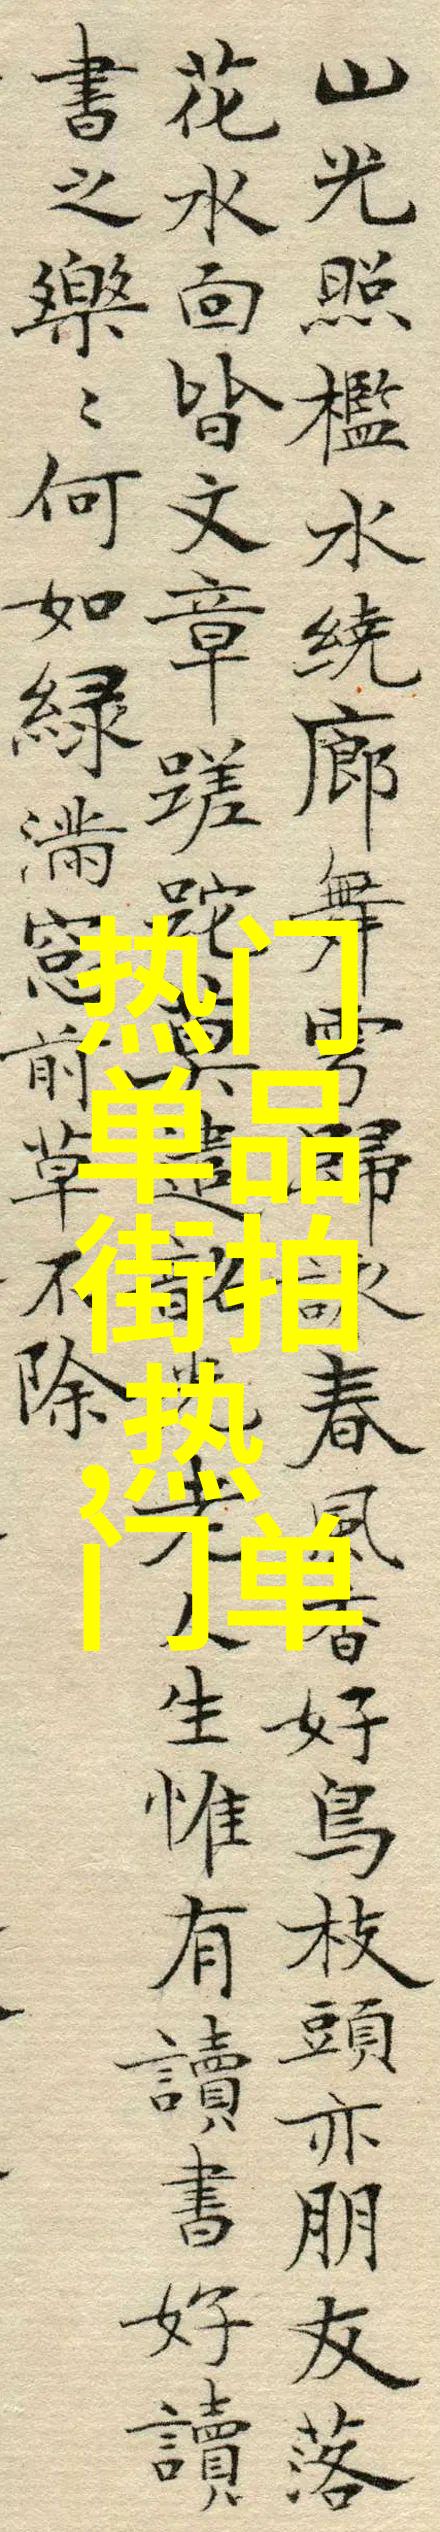 山光照檻水绕廊舞雩歸詠春風香好鳥枝頭亦朋友落
花水面皆文章蹉跎莫遣韶光老人生惟有讀書好讀
書之樂〻何如緑滿窓前草不除
热门
单品
街拍
,热
门单